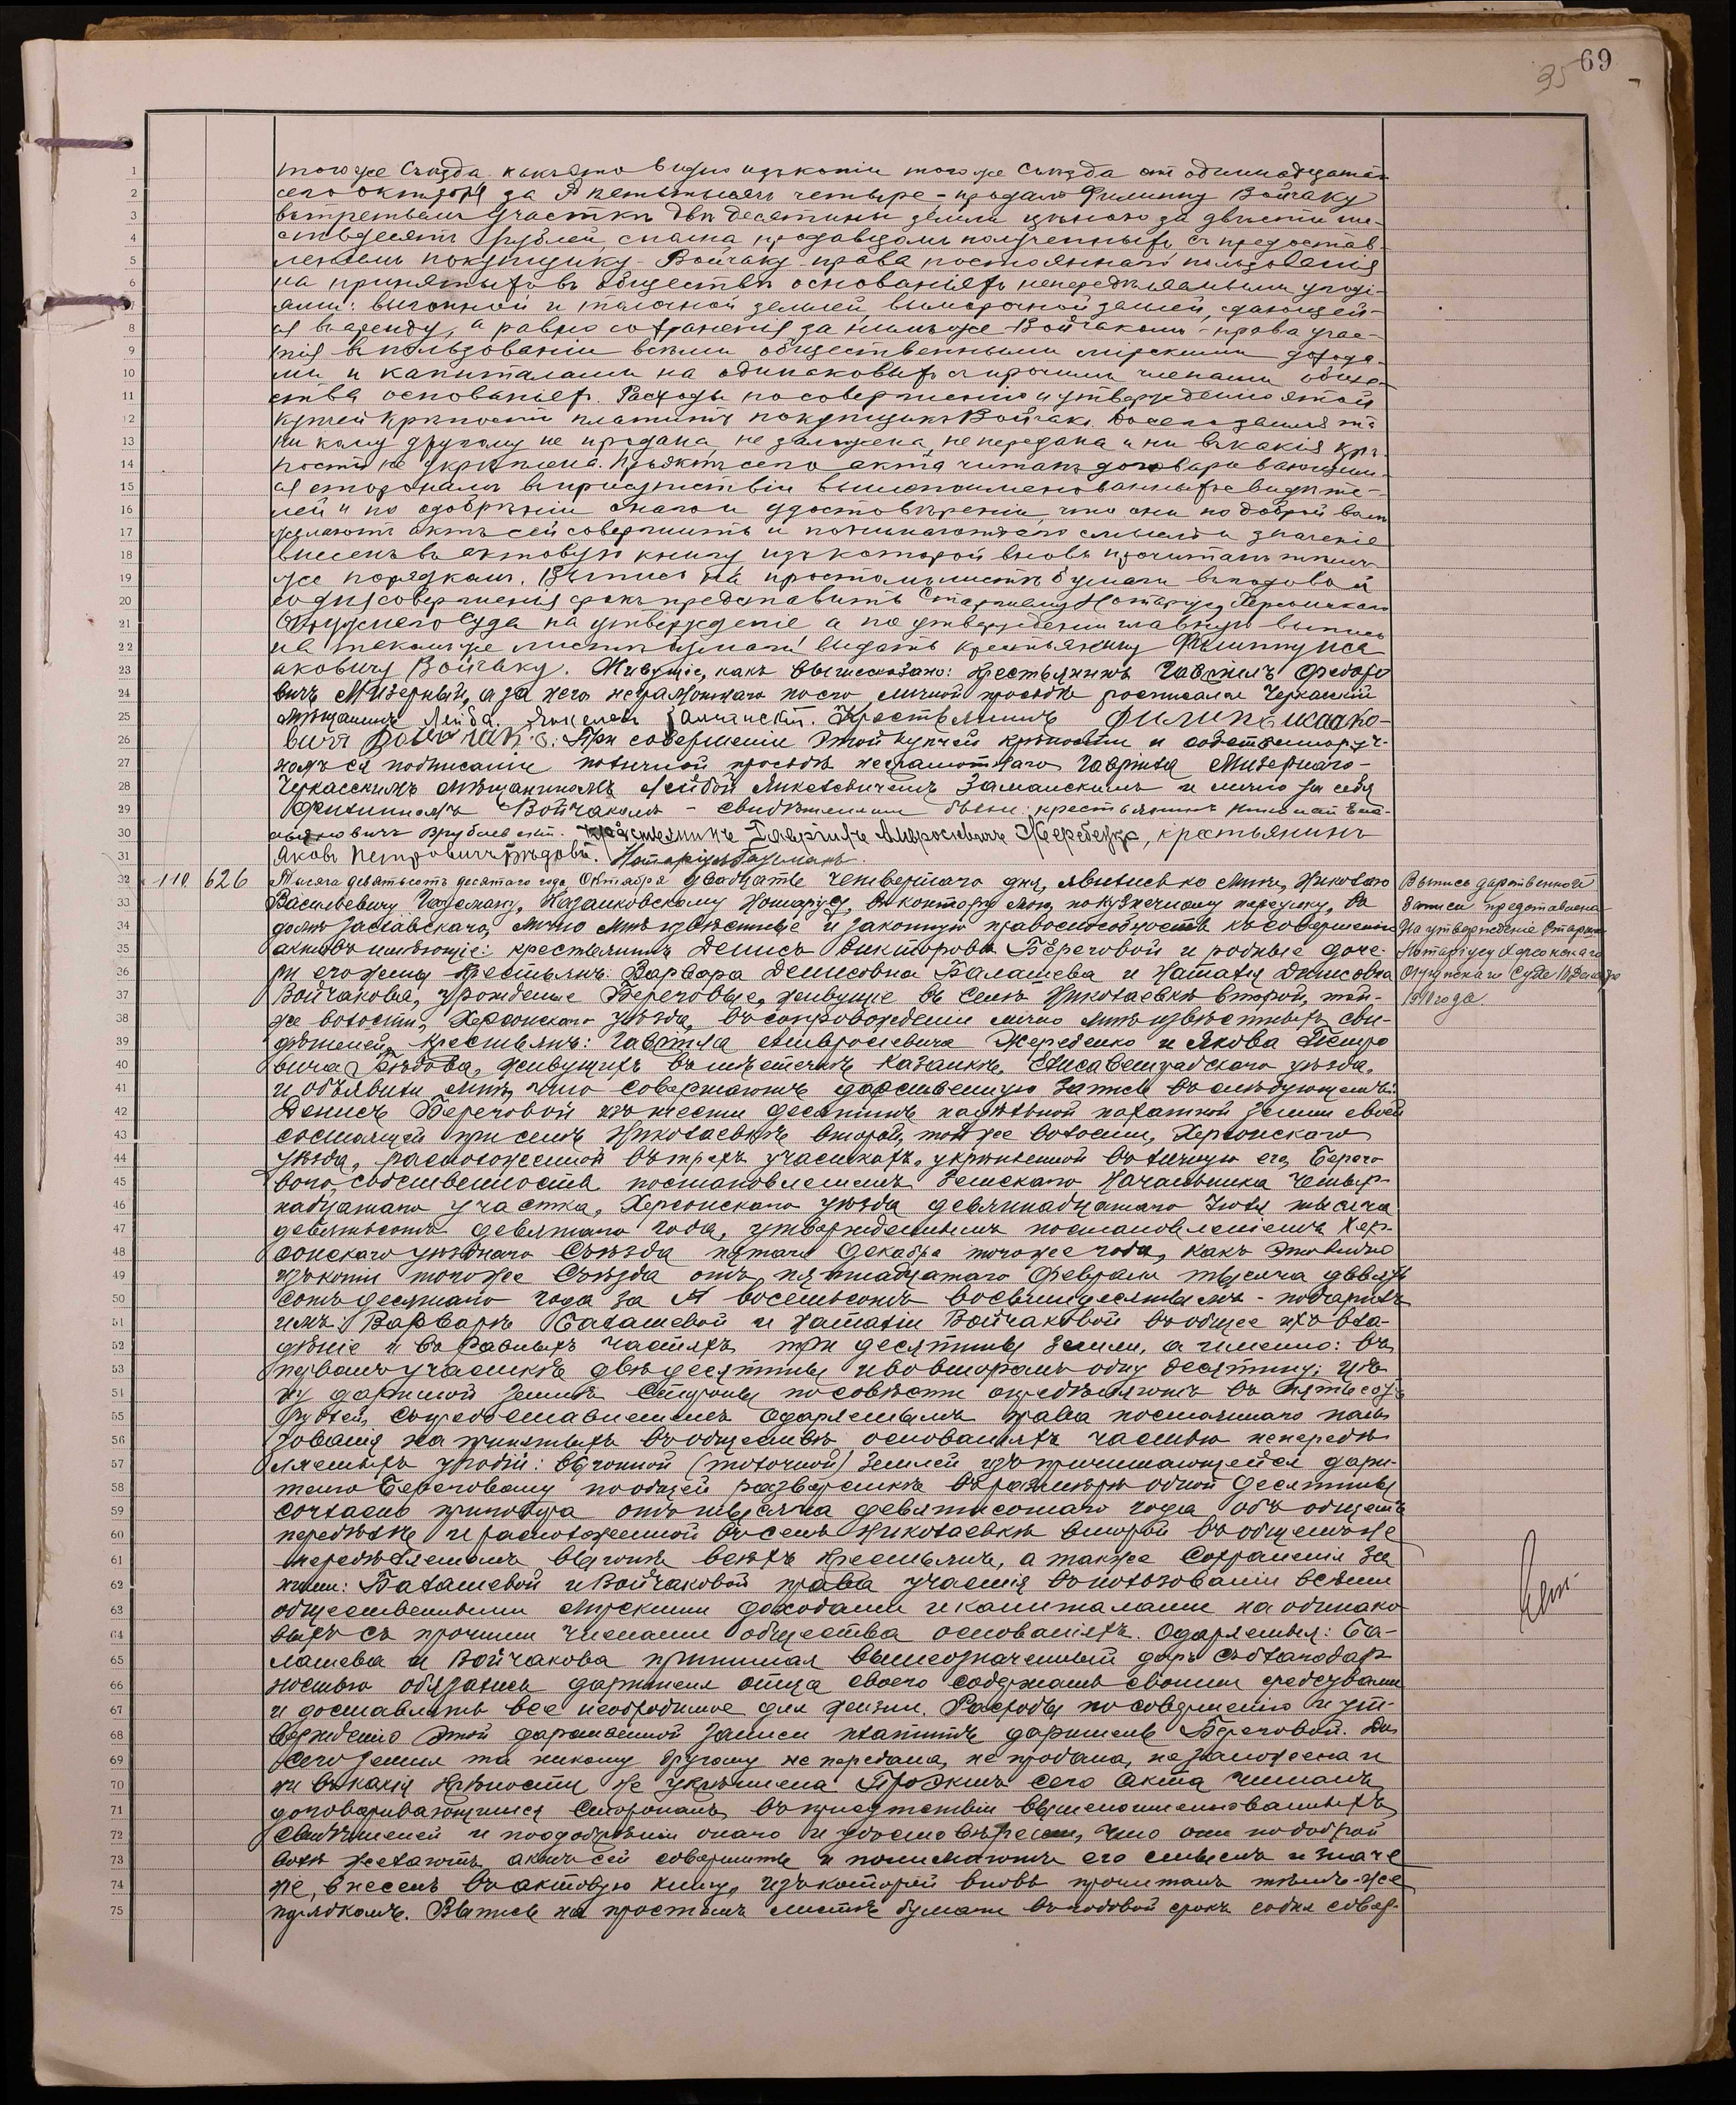 69
35
1 того же Съезда какъ это видно изъ копіи того же Съезда отъ одиннадцата-
2 сего октября за № пятьтысячъ четыре - продалъ Филиппу Войчаку
3 въ третьемъ участкѣ двѣ десятины земли цѣною за двѣсти ше-
4 стьдесятъ рублей, сполна продавцомъ полученныхъ съ предостав-
5 леніемъ покупщику - Войчаку права постояннаго пользованія
6 на принятыхъ въ обществѣ основаніяхъ непередѣляемыми угоді-
7 ями: выгонной и толочной землей, выморочной землей, сдающей-
8 ся въ аренду, а равно сохраненія за нимъ же Войчакомъ - права учас-
9 тія въ пользованіи всѣми общественными мірскими дохода-
10 ми и капиталами на одинаковыхъ съ прочими членами обще-
11 ства основаніяхъ. Расходы по совершенію и утвержденію этой
12 купчей крѣпости платитъ покупщикъ Войчакъ. До сего земля та
13 ни кому другому не продана, не заложена, не передана и ни въ какія крѣ-
14 пости не укрѣплена. Проэктъ сего акта читанъ договаривающим-
15 ся сторонамъ въ присутствіи вышепоименованныхъ свидѣте-
16 лей и по одобреніи онаго и удостовѣреніи, что они по доброй волѣ
17 желаютъ актъ сей совершить и понимаютъ его смыслъ и значеніе
18 внесенъ въ актовую книгу изъ которой вновь прочитанъ тѣмъ
19 же порядкомъ. Выпись на простомъ листѣ бумаги въ годовой
20 со дня совершенія срокъ представить Старшему Нотаріусу Херсонскаго
21 Окружнаго Суда на утвержденіе а по утвержденіи главную выпись
22 на такомъ же листѣ бумаги выдать крестьянину Филиппу Иса
23 аковичу Войчаку. Живущіе, какъ вышесказано: Крестьянинъ Гавріилъ Федоро
24 вичъ Мизерный, а за него неграмотнаго по его личной просьбѣ росписался Черкасскій
25 Мѣщанинъ Лейба Янкелевъ Заманскій. Крестьянинъ Филипъ Исаако-
26 вичъ Войчакъ. При совершеніи этой купчей крѣпости и собственноруч-
27 номъ ея подписаніи по личной просьбѣ неграмотнаго Гавріила Мизернаго-
28 Черкасскимъ мѣщаниномъ Лейбой Янкелевичемъ Заманскимъ и лично за себя
29 Филиппомъ Войчакомъ - свидѣтелями были: крестьянинъ Николай Ема-
30 Врублевскій. Крестьянинъ Гавріилъ Амвросіевичъ Жеребецко, крестьянинъ
31 Яковъ Петровичъ Бѣдовъ. Нотаріусъ Гаусманъ.
32 110 626 Тысяча девятьсотъ десятаго года Октября двадцать четвертаго дня, явились ко мнѣ, Николаю
33 Васильевичу Гаусману, Казанковскому Нотаріусу, въ контору мою, по Кузнечному переулку, въ
34 домѣ Заславскаго, лично мнѣ извѣстные и законную правоспособность къ совершенію
35 актовъ имѣющіе: крестьянинъ Денисъ Викторовъ Береговой и родные доче-
36 ри его жены крестьянъ: Варвара Денисовна Балашева и Наталія Денисовна
37 Войчакова, урожденные Береговые, живущіе въ селѣ Николаевкѣ второй, той-
38 же волости, Херсонскаго уѣзда, въ сопровожденіи лично мнѣ извѣстныхъ сви-
39 дѣтелей, крестьянъ: Гавріила Амвросіевича Жеребецко и Якова Петро
40 вича Бѣдова, живущихъ въ мѣстечкѣ Казанкѣ, Елисаветградскаго уѣзда,
41 и объявили мнѣ, что совершаютъ дарственную запись въ слѣдующемъ:
42 Денисъ Береговой изъ шести десятинъ надѣльной пахатной земли своей
43 состоящей при селѣ Николаевкѣ второй, той же волости, Херсонскаго
44 уѣзда, расположенной въ трехъ участкахъ, укрѣпленной въ личную его, Берего
45 вого собственность постановленіемъ Земскаго Начальника четыр-
46 надцатаго участка, Херсонскаго уѣзда девятнадцатаго Іюля тысяча
47 девятьсотъ девятаго года, утвержденнымъ постановленіемъ Хер-
48 сонскаго уѣзднаго Съѣзда пятаго Декабря того же года, какъ это видно
49 изъ копіи того же Съѣзда отъ пятнадцатаго Февраля тысяча девять
50 сотъ десятаго года за № восемьсотъ восемьдесятымъ - подарилъ
51 имъ: Варварѣ Балашевой и Наталіи Войчаковой въ общее ихъ вла-
52 дѣніе и въ равныхъ частяхъ три десятины земли, а именно: въ
53 первомъ участкѣ двѣ десятины и во второмъ одну десятину; цѣ-
54 ну даримой землѣ стороны по совѣсти опредѣляютъ въ пятьсотъ
55 рублей, съ предоставленіемъ одаряемымъ права постояннаго поль
56 зованія на принятыхъ въ обществѣ основаніяхъ частью непередѣ
57 ляемыхъ угодій: выгонной (толочной) землей изъ причитающейся дари-
58 телю Береговому по общей разверсткѣ въ размѣрѣ одной десятины
59 согласно приговора отъ тысяча девятисотаго года объ общемъ
60 передѣлѣ и расположенной въ селѣ Николаевкѣ второй въ общемъ не
61 передѣляемомъ выгонѣ всѣхъ крестьянъ, а также сохраненія за
62 ними: Балашевой и Войчаковой права участія въ пользованіи всѣми
63 общественными мірскими доходами и капиталами на одинако
64 выхъ съ прочими членами общества основаніяхъ. Одаряемыя: Ба-
65 лашева и Войчакова принимая вышеозначенный даръ съ благодар
66 ностью обязались дарителя отца своего содержать своими средствами
67 и доставлять все необходимое для жизни. Расходы по совершенію и ут-
68 вержденію этой дарственной записи платитъ даритель Береговой. До
69 сего земля та никому другому не передана, не продана, не заложена и
70 ни въ какія крѣпости не укрѣплена. Проэктъ сего акта читанъ
71 договаривающимся сторонамъ въ присутствіи вышепоименованныхъ
72 свидѣтелей и по одобреніи онаго и удостовѣреніи, что они по доброй
73 волѣ желаютъ актъ сей совершить и понимаютъ его смыслъ и значе
74 ніе, внесенъ въ актовую книгу, изъ которой вновь прочитанъ тѣмъ-же
75 порядкомъ. Выпись на простомъ листѣ бумаги въ годовой срокъ со дня совер-
Выпись дарственной
записи представлена
на утвержденіе Старш.
Нотаріусу Херсонскаго
Окружнаго Суда Декабря
1910 года